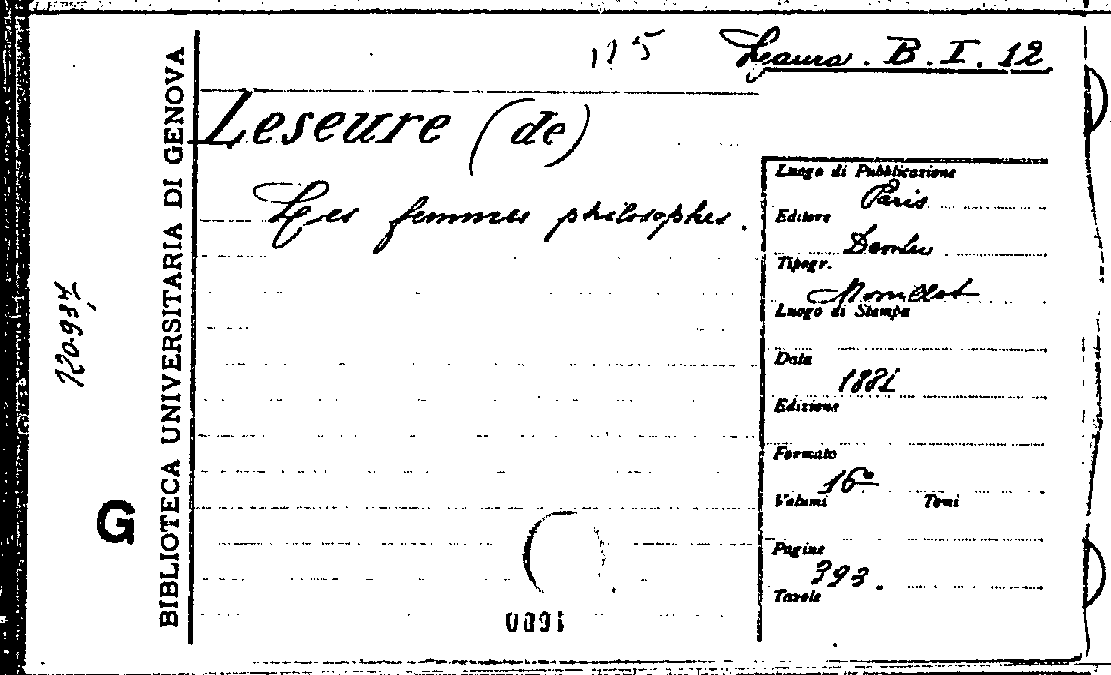 125
Laura. B. I. 12
BIBLIOTECA UNIVERSITARIA DI GENOVA
G
Leseure (de)
Les femmes philosophes.
Luogo di Pubblicazione
Paris
Editore
Dentu
Tipogr.
Luogo di Stampa
Data
1881
Edizione
Formato
16°
Volumi Tomi
Pagine
393.
Tavole